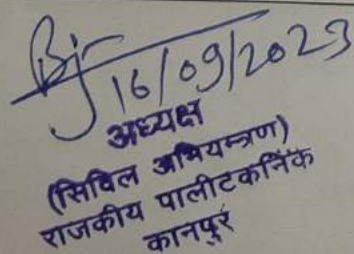 16/09/2023
अध्यक्ष
(सिविल अभियन्त्रण)
राजकीय पालीटकनिक
कानपुर